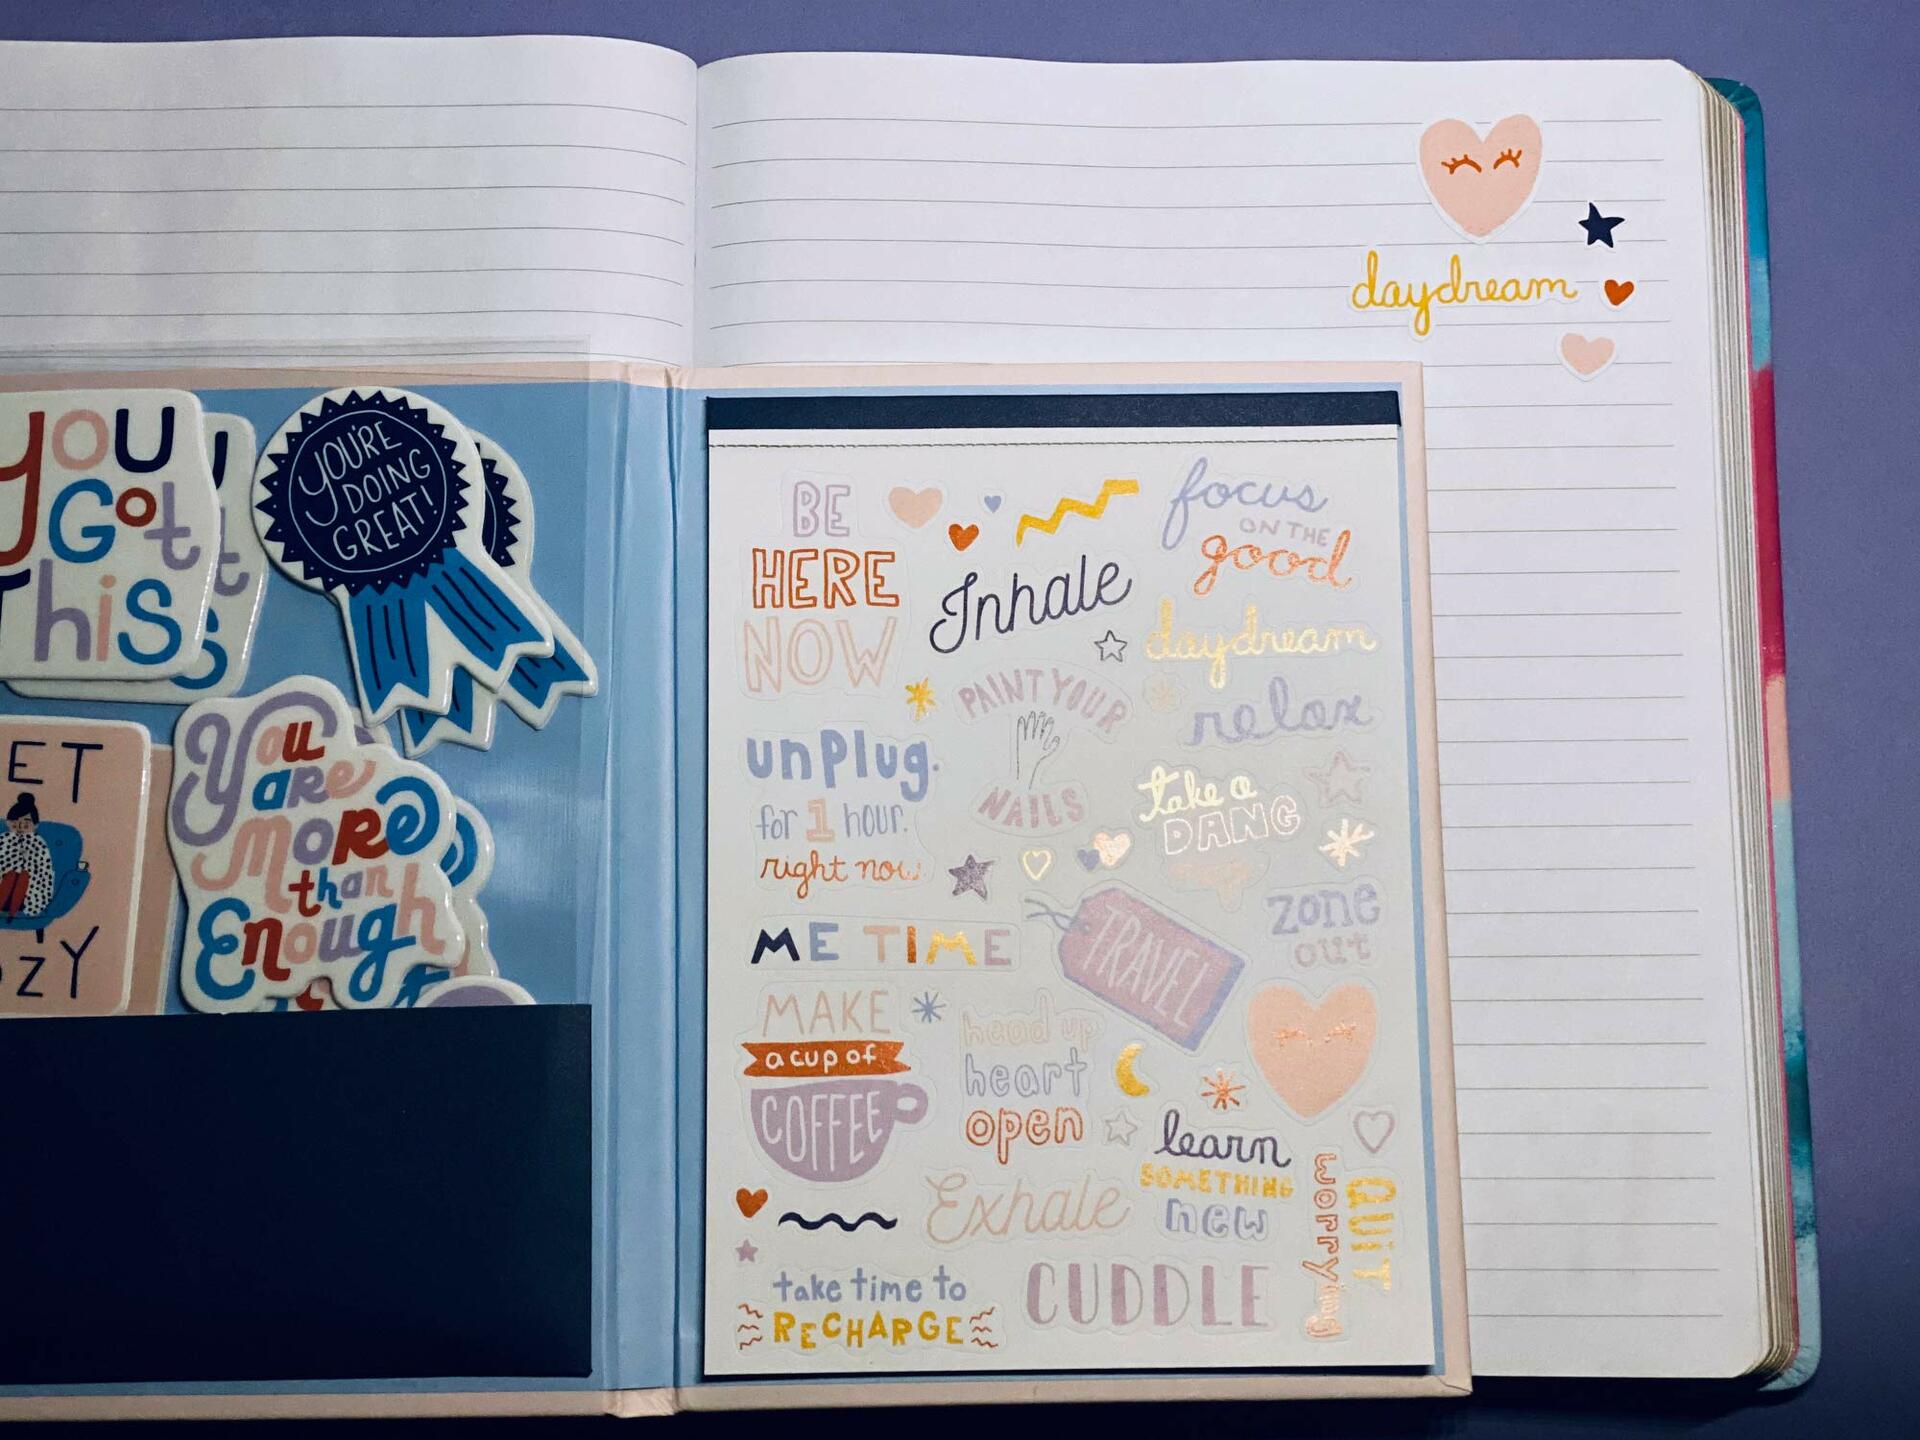 daydream
you
Got
This
YOU'RE
DOING
GREAT!
You
are
more
than
Enough
BE
HERE
NOW
Inhale
focus
ON THE
good
daydream
relax
PAINT YOUR
NAILS
unplug.
for 1 hour.
right now.
take a
DANG
ME TIME
TRAVEL
zone
out
MAKE
a cup of
COFFEE
head up
heart
open
learn
SOMETHING
new
Exhale
QUIT
worrying
take time to
RECHARGE
CUDDLE